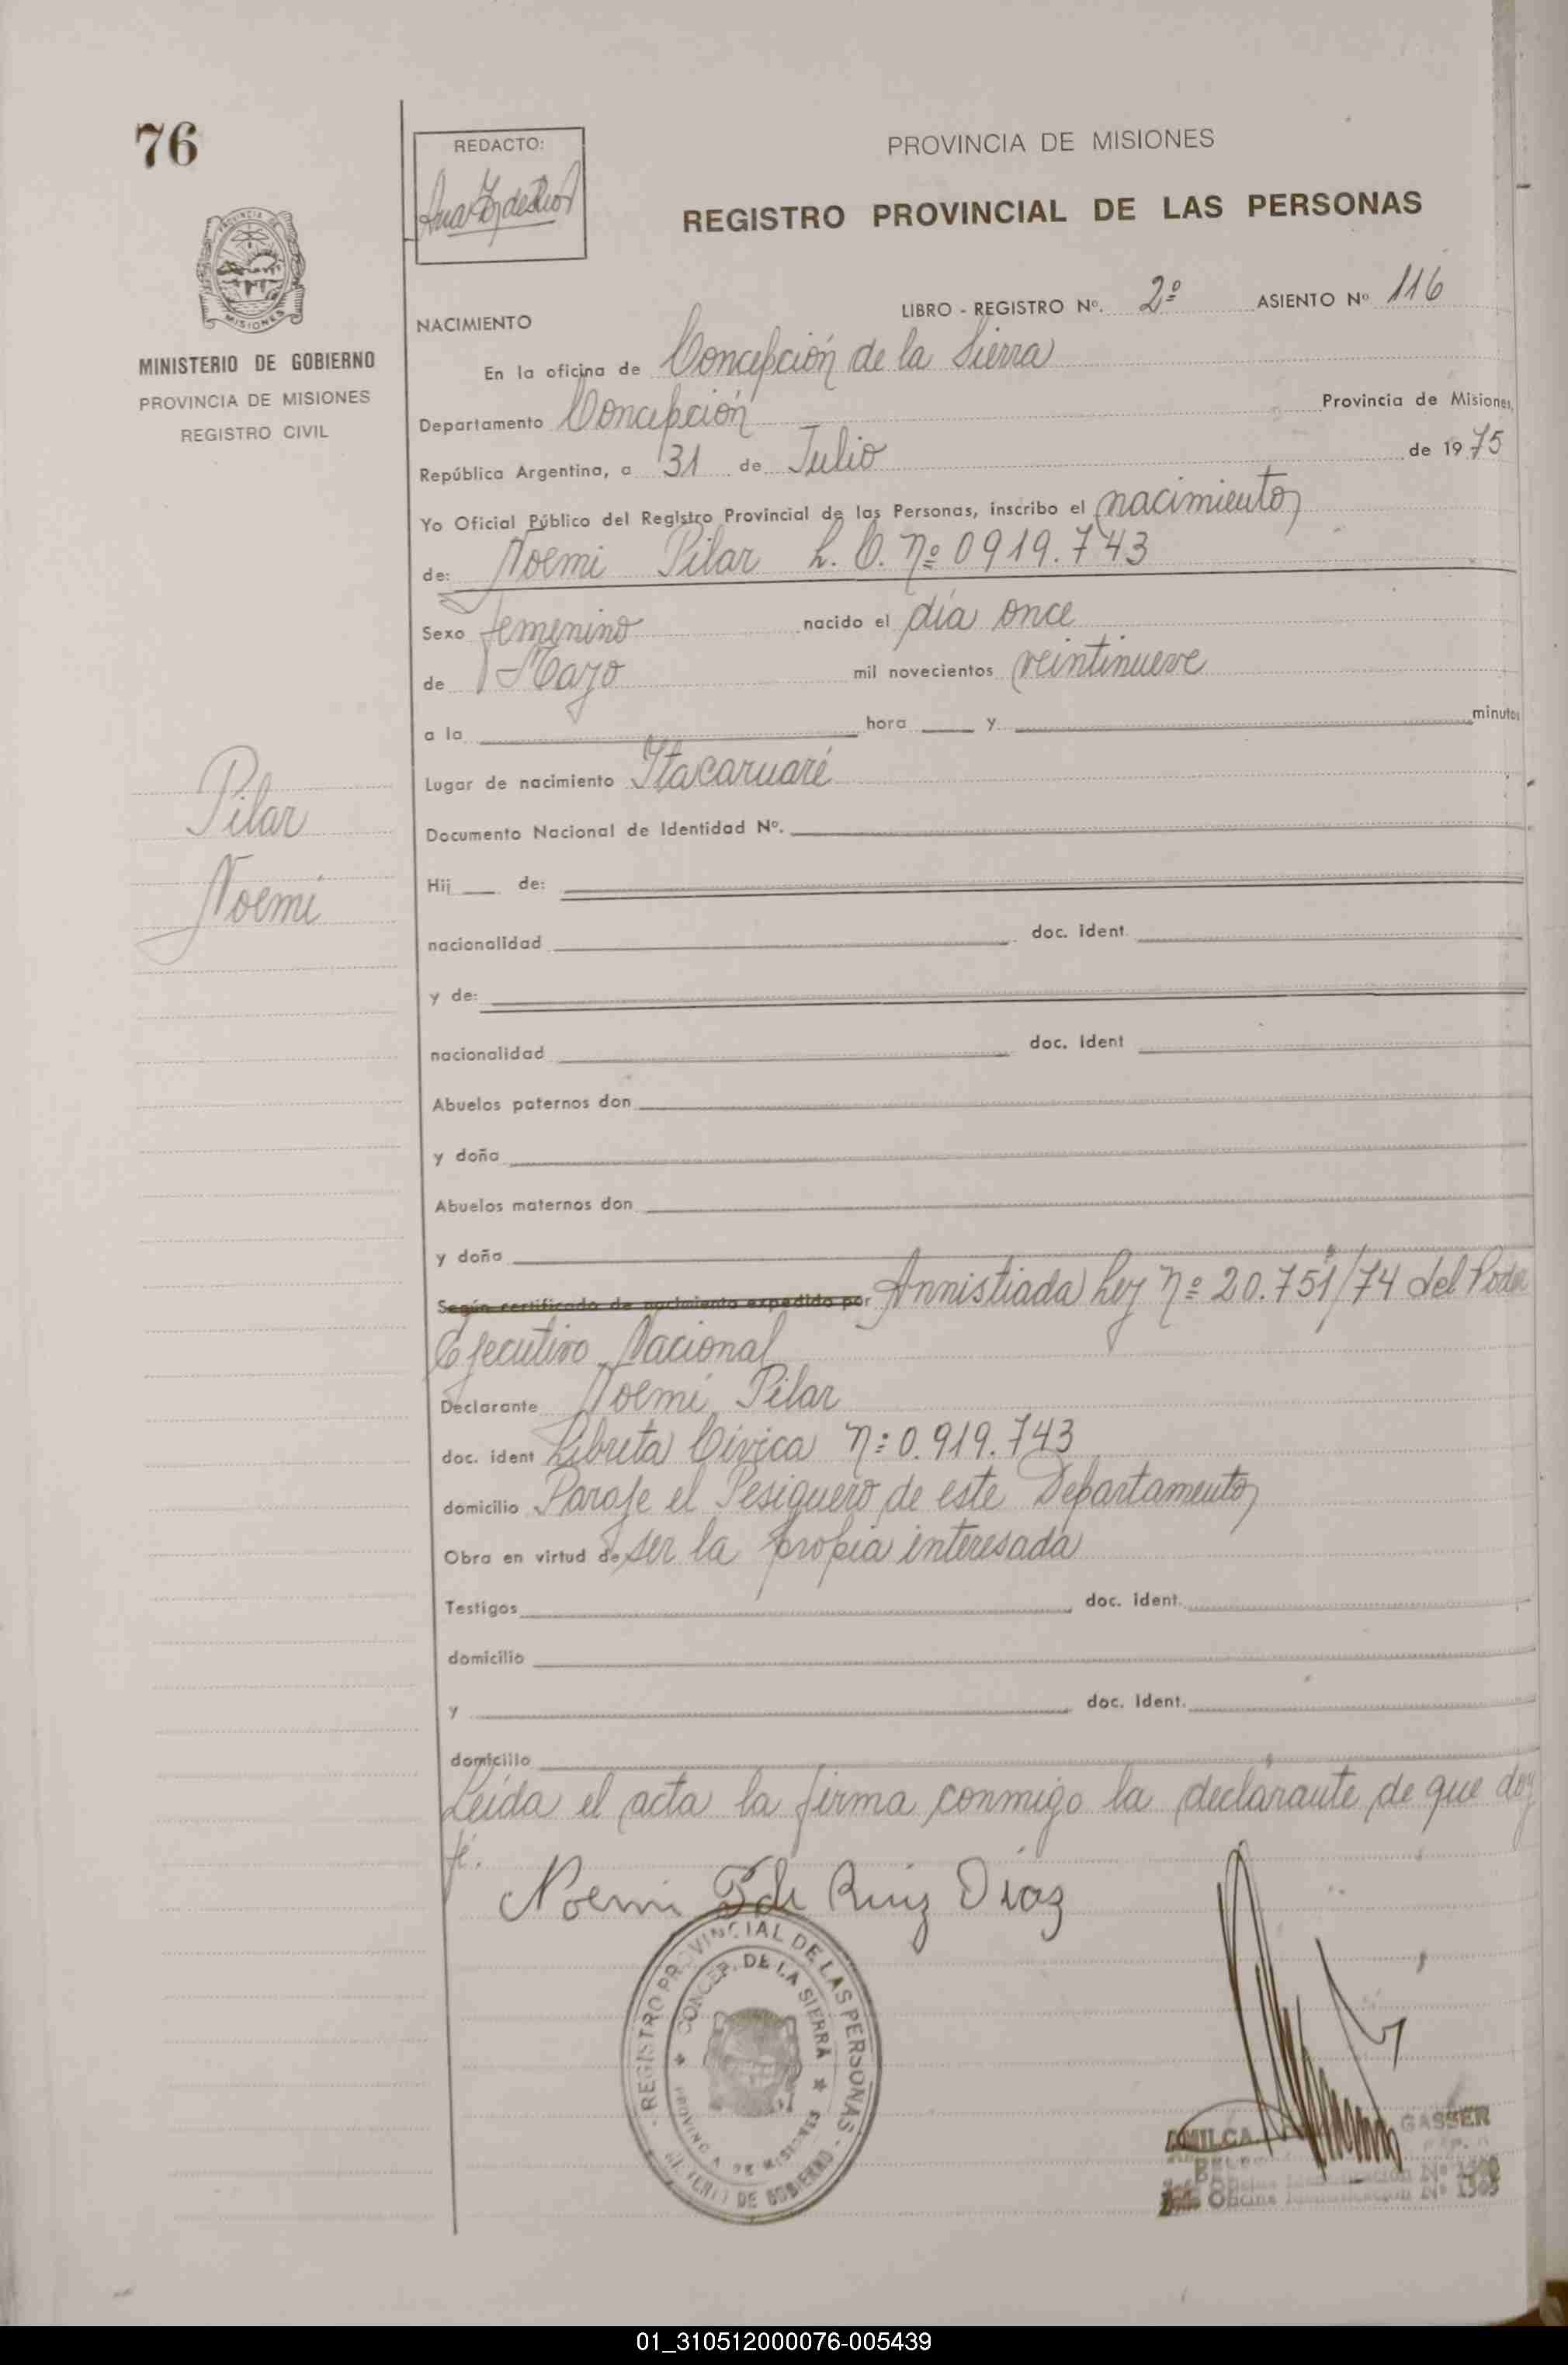 76
REDACTO:
PROVINCIA DE MISIONES
REGISTRO PROVINCIAL DE LAS PERSONAS
PROVINCIA
MISIONES
MINISTERIO DE GOBIERNO
PROVINCIA DE MISIONES
REGISTRO CIVIL
LIBRO - REGISTRO Nº. 2º ASIENTO Nº 116
NACIMIENTO
En la oficina de Concepción de la Sierra
Departamento Concepción Provincia de Misiones,
República Argentina, a 31 de Julio de 1975
Yo Oficial Público del Registro Provincial de las Personas, inscribo el nacimiento
de: Noemi Pilar L. C. nº 0919.743
Sexo femenino nacido el día once
de Mayo mil novecientos veintinueve
a la hora y minutos
Lugar de nacimiento Itacaruaré
Documento Nacional de Identidad Nº.
Pilar
Noemi
Hij de:
nacionalidad doc. ident.
y de:
nacionalidad doc. ident
Abuelos paternos don
y doña
Abuelos maternos don
y doña
Según certificado de nacimiento expedido por Annistiada Ley nº 20.751/74 del Poder
Ejecutivo Nacional
Declarante Noemi Pilar
doc. ident Libreta Cívica n: 0.919.743
domicilio Paraje el Pesiguero de este Departamento
Obra en virtud de ser la propia interesada
Testigos doc. ident.
domicilio
y doc. ident.
domicilio
Leída el acta la firma conmigo la declarante de que doy
fé.
Noemi P de Ruiz Diaz
REGISTRO PROVINCIAL DE LAS PERSONAS
CONCEP. DE LA SIERRA
PROVINCIA DE MISIONES
DE GOBIERNO
AMILCA GASSER
Oficina Identificación Nº 1305
01_310512000076-005439